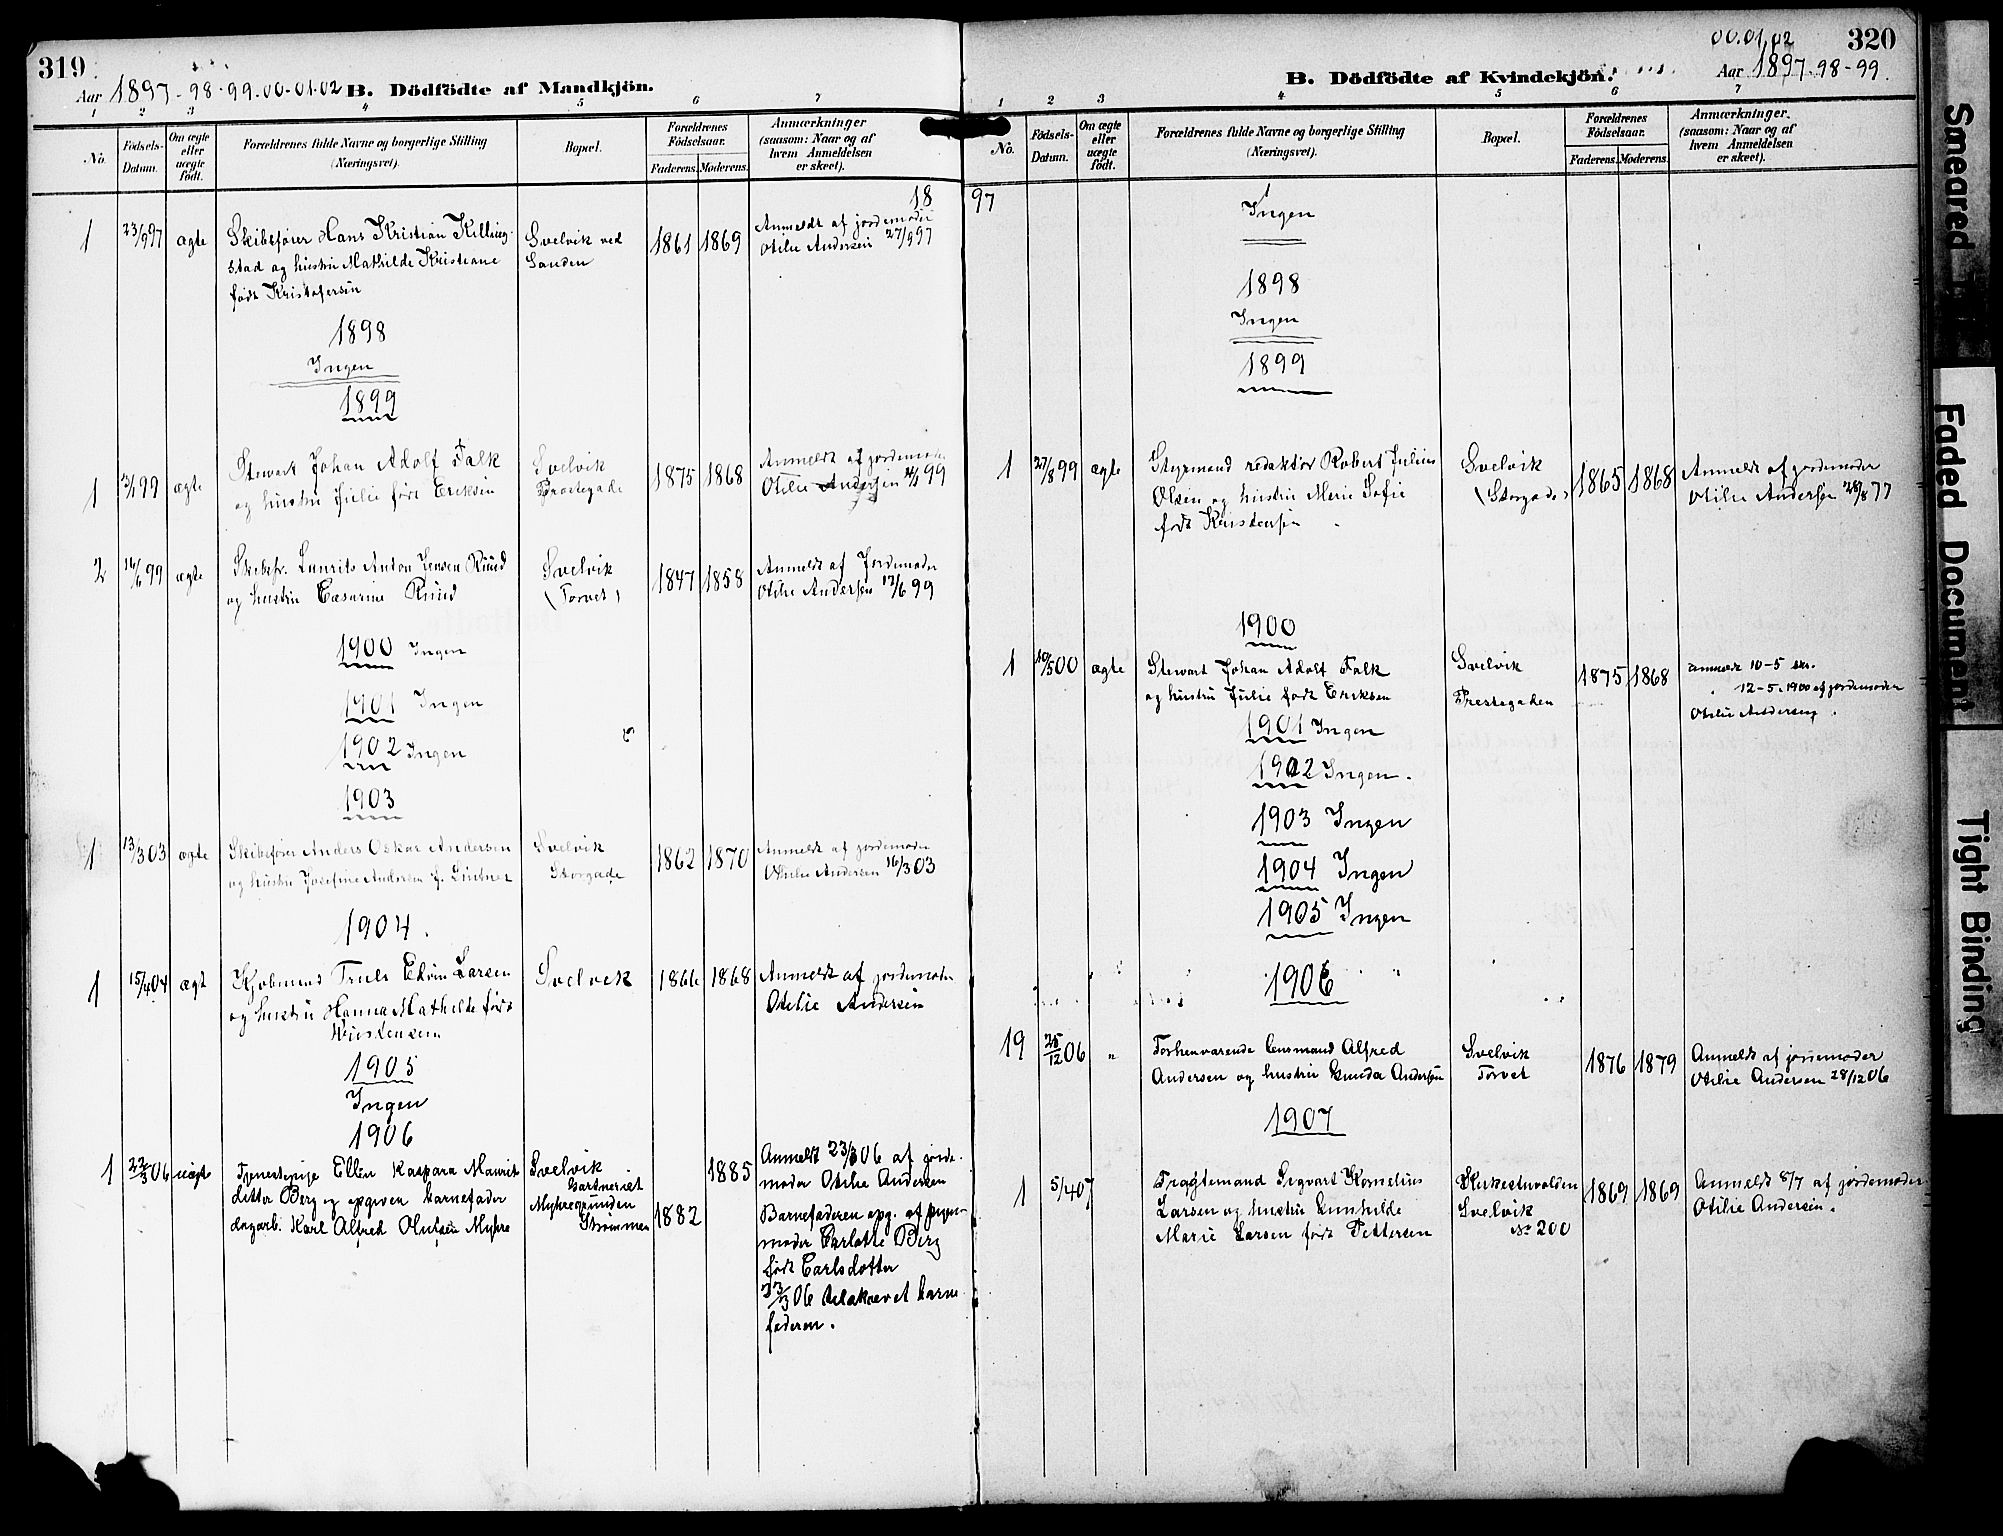 319
Aar 1897-98-99-00-01-02 B. Dödfödte af Mandkjön.
1 2 3 4 5 6 7
No.
Födsels-Datum.
Om ægte eller uægte födt.
Forældrenes fulde Navne og borgerlige Stilling
(Næringsvei).
Bopæl.
Forældrenes Födselsaar.
Faderens. Moderens.
Anmærkninger
(saasom: Naar og af
hvem Anmeldelsen
er skeet).
18
1 23/9 97 ægte Skibsfører Hans Kristian Killing- Svelvik ved 1861 1869 Anmeldt af jordemoder
stad og hustru Mathilde Kristiane Sanden Otilie Andersen 27/9 97
født Kristofersen
1898
Ingen
1899
1 99 ægte Stewart Johan Adolf Falk Svelvik 1875 1868 Anmeldt af jordemoder
og hustru Julie født Eriksen Prestegade Otilie Andersen 99
2 99 ægte Skibsfr. Lauritz Anton Jensen Ruud Svelvik 1847 1858 Anmeldt af Jordemoder
og hustru Cæsarine Ruud (Torvet) Otilie Andersen 17/6 99
1900 Ingen
1901 Ingen
1902 Ingen
1903
1 13/3 03 ægte Skibsfører Anders Oskar Andersen Svelvik 1862 1870 Anmeldt af jordemoder
og hustru Josefine Andersen f. Storgade Otilie Andersen 16/3 03
1904.
1 15/4 04 ægt Kjøbmand Truls Edvin Larsen Svelvik 1866 1868 Anmeldt af jordemoder
og hustru Hanna Mathilde født Otilie Andersen
Kristensen
1905
Ingen
1906
1 22/3 06 uægte Tjenestepige Ellen Kaspara Mauritz Svelvik 1885 Anmeldt 23/3 06 af jorde-
ditter Berg og opgiven barnefader Gartneriet moder Otilie Andersen
dagarb. Karl Alfred Olufsen Myhre Myhregrunden 1882 Barnefaderen opg. af
Strømmen moder Carlotte Berg
født Carlsdotter
06 tilskrevet barne
faderen.
00.01.02 320
B. Dödfödte af Kvindekjön. Aar 1897-98-99
1 2 3 4 5 6 7
No.
Födsels-Datum.
Om ægte eller uægte födt.
Forældrenes fulde Navne og borgerlige Stilling
(Næringsvei).
Bopæl.
Forældrenes Födselsaar.
Faderens. Moderens.
Anmærkninger.
(saasom: Naar og af
hvem Anmeldelsen
er skeet).
97
Ingen
1898
Ingen
1899
1 27/8 99 ægte Styrmand redaktør Robert Julius Svelvik 1865 1868 Anmeldt af jordemoder
Olsen og hustru Marie Sofie (Storgade) Otilie Andersen 28/8 77
født Kristensen
1900
1 10/5 00 ægte Stewart Johan Adolf Falk Svelvik 1875 1868 anmeldt 10-5 skr.
og hustru Julie født Eriksen Prestegaden 12-5-1900 af jordemoder
Otilie Andersen.
1901 Ingen
1902 Ingen.
1903 Ingen
1904 Ingen
1905 Ingen
1906
19 25/12 06 " Forhenværende Lensmand Alfred Svelvik 1876 1879 Anmeldt af jordemoder
Andersen og hustru Gunda Andersen Torvet Otilie Andersen 28/12 06
1907
1 5/4 07 Sigvart Kornelius 1869 1869 Anmeldt 8/7 af jordemoder
Larsen og hustru Gunhilde Svelvik Otilie Andersen.
Marie Larsen født Pettersen No 200
Smeared
Faded Document
Tight Binding